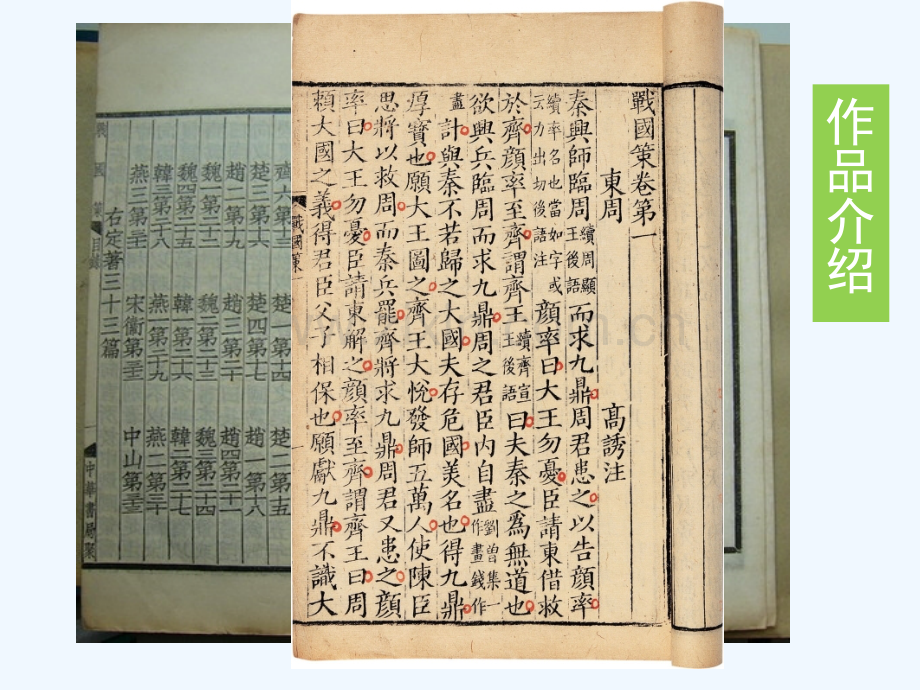 作品介绍
戰國策卷第一
東周 高誘注
秦興師臨周續周顯王後語而求九鼎周君患之以告顔率
續率名也當如字或云力出切後語注顔率曰大王勿憂臣請東借救
於齊顔率至齊謂齊王續齊宣王後語曰夫秦之爲無道也
欲興兵臨周而求九鼎周之君臣內自盡劉曾集一作畫錢作
盡計與秦不若歸之大國夫存危國美名也得九鼎
厚寶也願大王圖之齊王大悅發師五萬人使陳臣
思將以救周而秦兵罷齊將求九鼎周君又患之顔
率曰大王勿憂臣請東解之顔率至齊謂齊王曰周
賴大國之義得君臣父子相保也願獻九鼎不識大
戰國策 一
齊六第十三 楚一第十四 楚二第十五
楚三第十六 楚四第十七 趙一第十八
趙二第十九 趙三第二十 趙四第二十一
魏一第二十二 魏二第二十三 魏三第二十四
魏四第二十五 韓一第二十六 韓二第二十七
韓三第二十八 燕一第二十九 燕二第三十
燕三第三十一 宋衞第三十二 中山第三十三
右定著三十三篇
目錄 中華書局聚